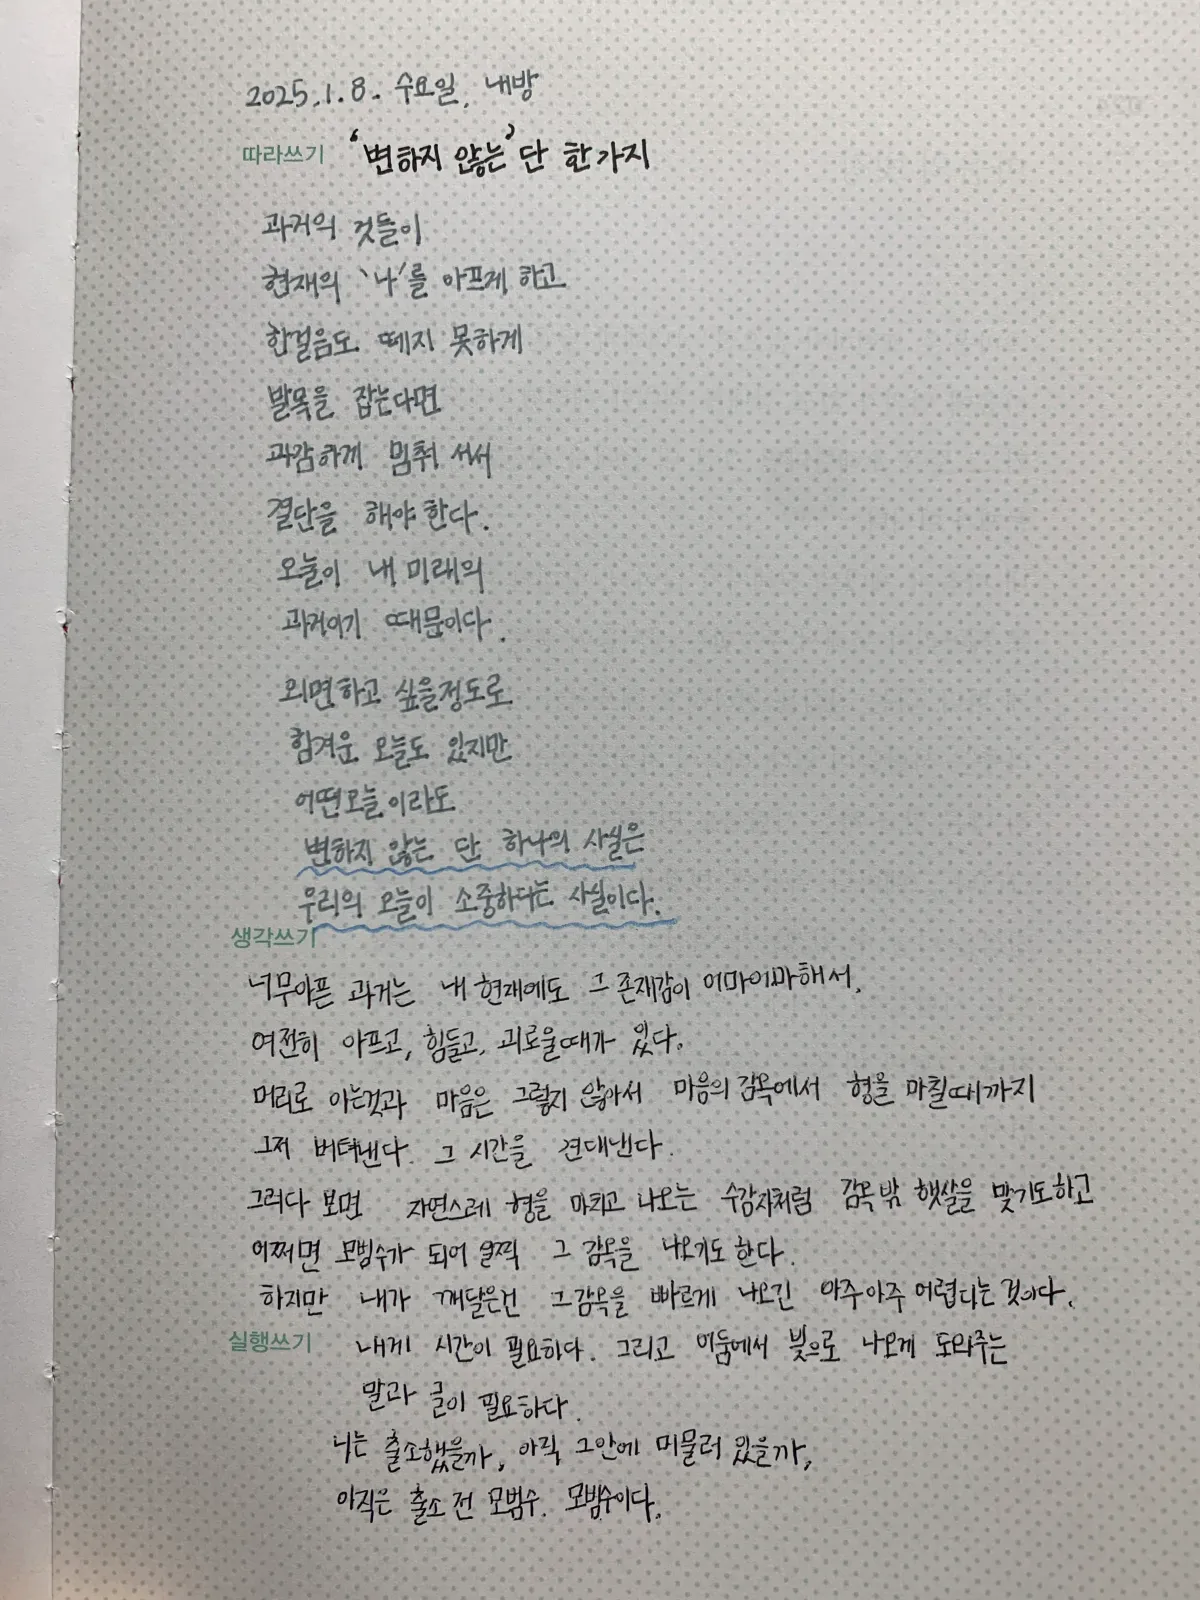 2025. 1. 8. 수요일. 내방
따라쓰기 '변하지 않는' 단 한가지
과거의 것들이
현재의 '나'를 아프게 하고
한걸음도 떼지 못하게
발목을 잡는다면
과감하게 멈춰 서서
결단을 해야 한다.
오늘이 내 미래의
과거이기 때문이다.
외면하고 싶을정도로
힘겨운 오늘도 있지만
어떤오늘이라도
변하지 않는 단 하나의 사실은
우리의 오늘이 소중하다는 사실이다.
생각쓰기
너무아픈 과거는 내 현재에도 그 존재감이 어마어마해서,
여전히 아프고, 힘들고, 괴로울때가 있다.
머리로 아는것과 마음은 그렇지 않아서 마음의 감옥에서 형을 마칠때까지
그저 버텨낸다. 그 시간을 견뎌낸다.
그러다 보면 자연스레 형을 마치고 나오는 수감자처럼 감옥 밖 햇살을 맞기도하고
어쩌면 모범수가 되어 일찍 그 감옥을 나오기도 한다.
하지만 내가 깨달은건 그감옥을 빠르게 나오긴 아주아주 어렵다는 것이다.
실행쓰기 내게 시간이 필요하다. 그리고 어둠에서 빛으로 나오게 도와주는
말과 글이 필요하다.
나는 출소했을까, 아직 그안에 머물러 있을까,
아직은 출소 전 모범수. 모범수이다.